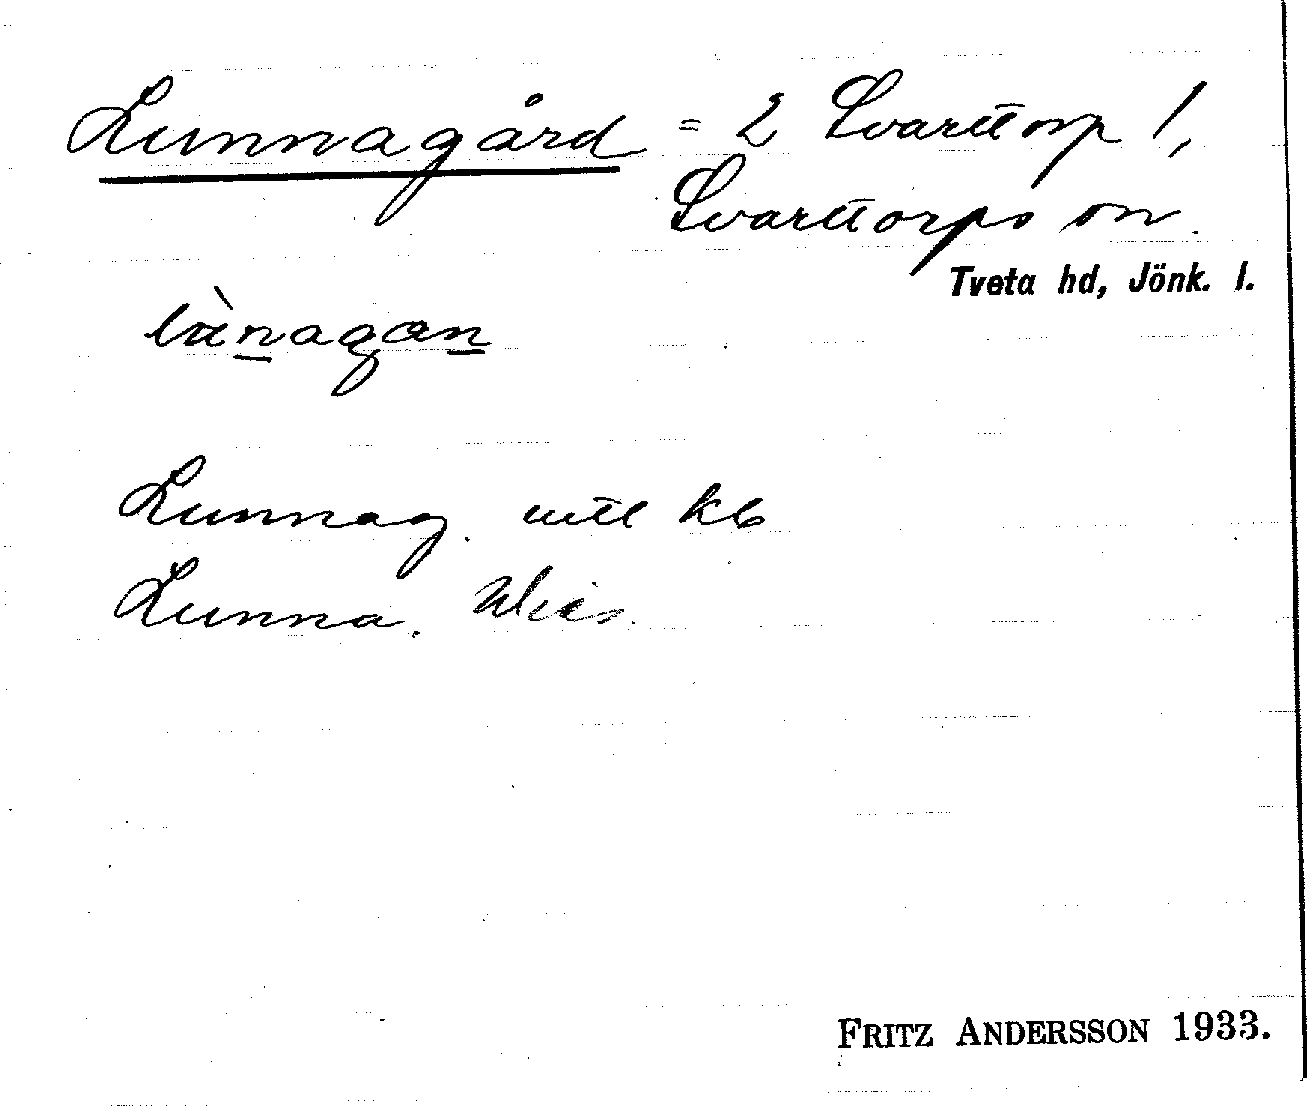 Lunnagård = 2 Svarttorp 1,
Svarttorps sn.
Tveta hd, Jönk. l.
lùnagan
Lunnag. uttl kb
Lunna.
FRITZ ANDERSSON 1933.